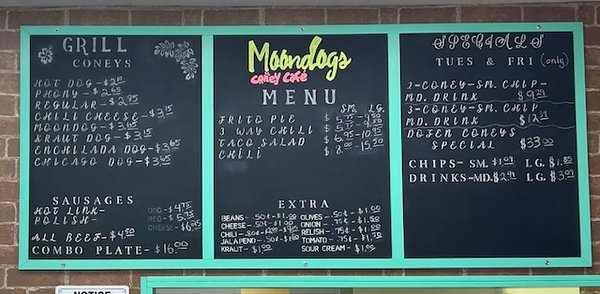 GRILL
CONEYS
HOT DOG-
PHONY - $2.65
REGULAR - $2.95
CHILI CHEESE - $3.15
MOONDOG - $3.65
KRAUT DOG - $3.15
ENCHILADA DOG - $3.65
CHICAGO DOG - $3.65
SAUSAGES
HOT LINK-
POLISH-
DOG - $4.75
RED - $5.75
CHEESE - $6.25
ALL BEEF -
COMBO PLATE - $16.00
Moondogs
Coney Café
MENU
SM. LG.
FRITO PIE
3 WAY CHILI
TACO SALAD
CHILI
EXTRA
BEANS - .50¢ - $1.00
CHEESE - .50¢ -
CHILI -
JALAPENO - .50¢ -
KRAUT - $1.00
OLIVES - .50¢ - $1.00
ONION - .75¢ - $1.50
RELISH - .75¢ - $1.00
TOMATO - .75¢ -
SOUR CREAM - $1.00
SPECIALS
TUES & FRI (only)
2-CONEY-SM. CHIP-
MD. DRINK
3-CONEY-SM. CHIP
MD. DRINK
DOZEN CONEYS
SPECIAL $33.00
CHIPS - SM. LG. $1.85
DRINKS - MD. LG. $3.01
NOTICE